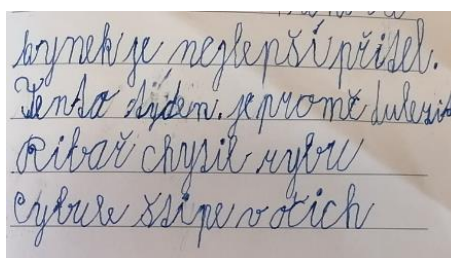 bynek je nejlepší přítel.
Tento týden. je promě dulezit
Ribař chytil rybu
Cybule štípe v očích